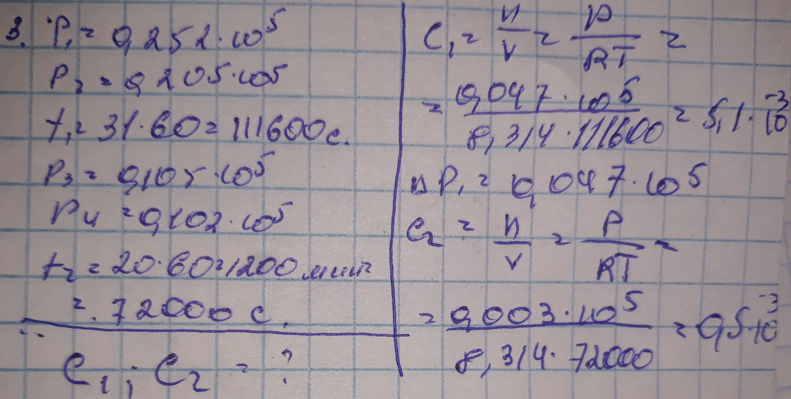 3. P₁ = 0,252·10⁵
P₂ = 0,205·10⁵
t₁ = 31·60 = 111600 с.
P₃ = 0,105·10⁵
P₄ = 0,102·10⁵
t₂ = 20·60 = 1200 мин =
= 72000 с.
C₁; C₂ = ?
C₁ = n/V = P/RT =
= 0,047·10⁵ / 8,314·111600 = 5,1·10⁻³
ΔP₁ = 0,047·10⁵
C₂ = n/V = P/RT =
= 0,003·10⁵ / 8,314·72000 = 0,5·10⁻³